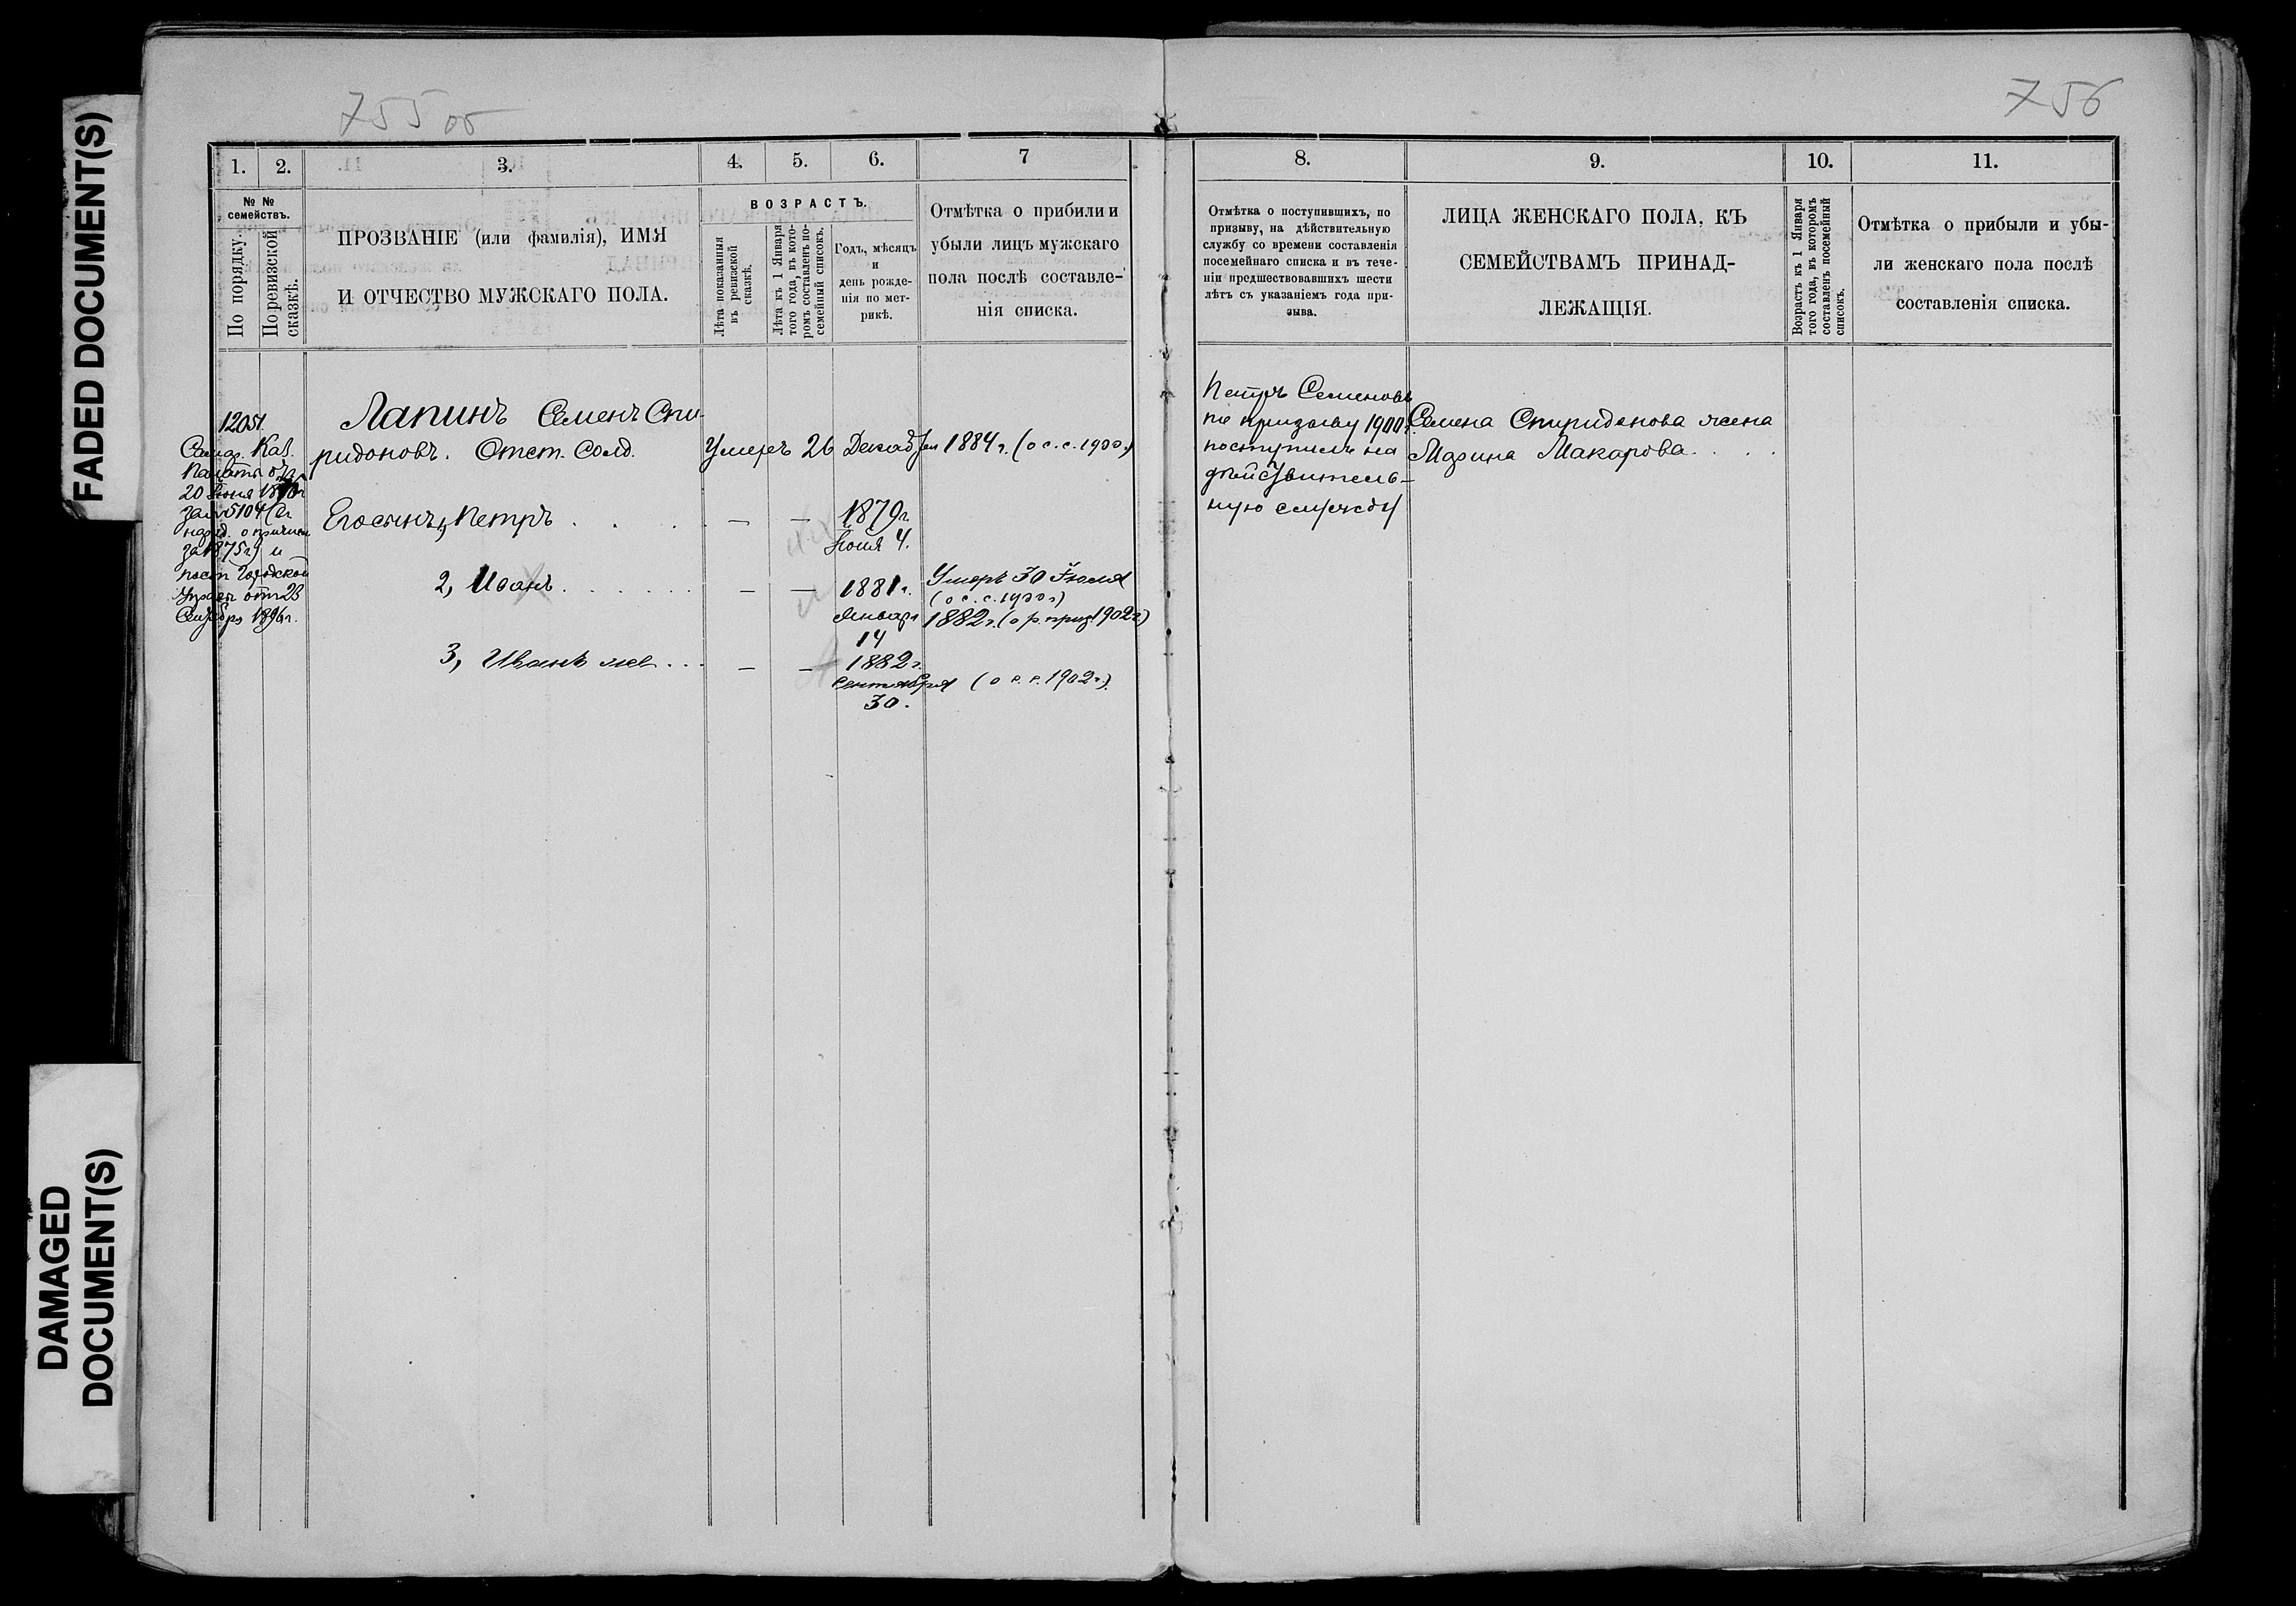 FADED DOCUMENT(S)
DAMAGED
DOCUMENT(S)
755 об
1. 2. 3. 4. 5. 6. 7
№ №
семействъ.
По порядку.
По ревизской
сказкѣ.
ПРОЗВАНІЕ (или фамилія), ИМЯ
И ОТЧЕСТВО МУЖСКАГО ПОЛА.
ВОЗРАСТЪ.
Лѣта показанныя
въ ревизской
сказкѣ.
Лѣта къ 1 Января
того года, въ кото-
ромъ составленъ по-
семейный списокъ.
Годъ, мѣсяцъ
и
день рожде-
нія по мет-
рикѣ.
Отмѣтка о прибыли и
убыли лицъ мужскаго
пола послѣ составле-
нія списка.
1205
Самар. Каз.
Палаты отъ
20 Іюня
за № 5104
за 1875 г) и
пост Городской
Управы от 23
1896 г.
Лапинъ Семенъ Спи-
ридоновъ. Отст. Солд.
Умеръ 26 Декабря 1884 г. (о с.с. 1900 г)
Его сынъ 1, Петръ . . . — — 1879 г.
Іюня 4.
2, Иванъ . . . . . . — — 1881 г.
Января
14
Умеръ 30 Іюля
(о с. с. 1900 г)
1882 г. (о р. приз 1902 г)
3, Иванъ же . . . — — 1882 г.
Сентября (о с. с. 1902 г.)
30.
756
8. 9. 10. 11.
Отмѣтка о поступившихъ, по
призыву, на дѣйствительную
службу со времени составленія
посемейнаго списка и въ тече-
ніи предшествовавшихъ шести
лѣтъ съ указаніемъ года при-
зыва.
ЛИЦА ЖЕНСКАГО ПОЛА, КЪ
СЕМЕЙСТВАМЪ ПРИНАД-
ЛЕЖАЩІЯ.
Возрастъ къ 1 Января
того года, въ которомъ
составленъ посемейный
списокъ.
Отмѣтка о прибыли и убы-
ли женскаго пола послѣ
составленія списка.
Петръ Семеновъ
по призыву 1900 г.
поступилъ на
дѣйствитель-
ную службу
Семена Спиридонова жена
Марина Макарова. . . .